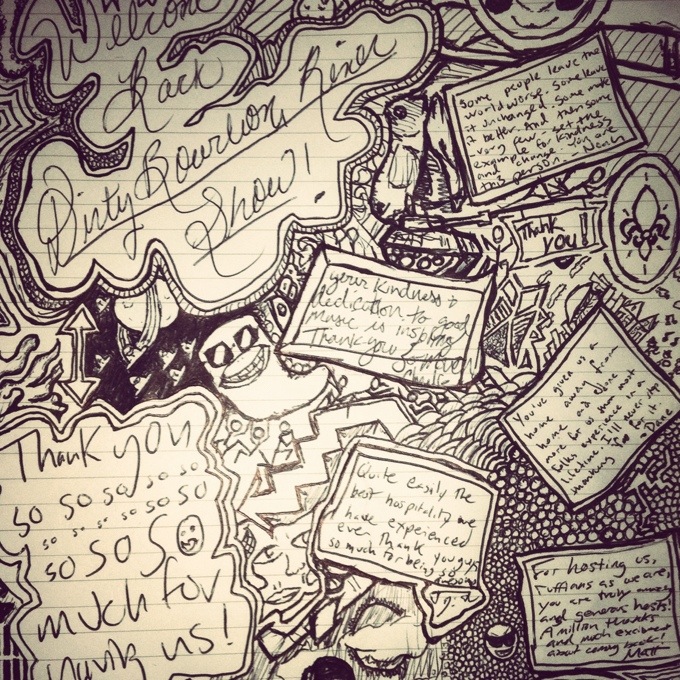 Welcome
Back
Dirty Bourbon River
Show!
Some people leave the
world worse, some leave
it unchanged, some make
it better. And then some
very few - set the
example for kindness
and change. Jon is
this person. -
Thank
you!
your kindness &
dedication to good
music is inspiring
Thank you so much
You've given us a
home away from
home and done
more for us than most
folks expect in a
lifetime. I'll never
Quite easily the
best hospitality we
have experienced
ever. Thank you guys
so much for being so
awesome
Thank you
so so so so so so
so so so so so so so
so so so
much for
having us!
For hosting us,
ruffians as we are,
you are truly amazing
and generous hosts!
A million thanks
and much excitement
about coming back!
Matt